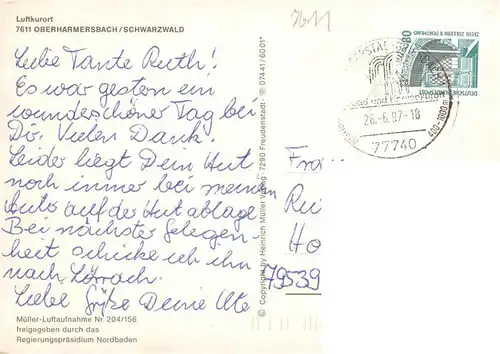 Luftkurort
7611 OBERHARMERSBACH / SCHWARZWALD
7611
Liebe Tante Ruth!
Es war gestern ein
wunderschöner Tag bei
Dir. Vielen Dank!
Leider liegt Dein Hut
noch immer bei meinem
Auto auf der Hutablage
Bei nächster Gelegen-
heit schicke ich ihn
nach Lörrach.
Liebe Grüße Deine Ute
Müller-Luftaufnahme Nr. 204/156
freigegeben durch das
Regierungspräsidium Nordbaden
© Copyright by Heinrich Müller Verlag · 7290 Freudenstadt · ☎ 07441/6001*
80
ZECHE ZOLLERN II DORTMUND
DEUTSCHE BUNDESPOST
26.-6.97-18
400-1000 m
77740
Fra
Ru
Ho
79539